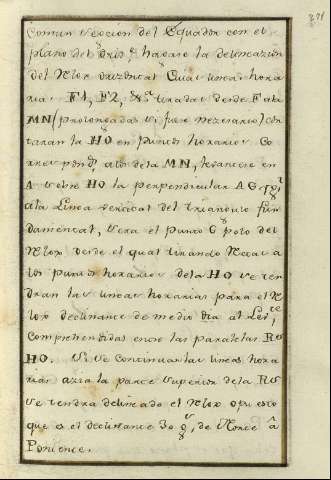 comun seccion del Equador con el
plano del Oriz.e hagase la delineazion
del Relox orizontal Cuias lineas hora
rias F1, F2, &.a tiradas desde F a la
MN (prolongadas si fuere nezesario) cor
taran la HO en Puntos horarios Co
rrespond.s a los de la MN, levantese en
A sobre HO la perpendicular AG
a la Linea vertical del triangulo fun
damental, sera el punto G polo del
Relox desde el qual tirando Rectas a
los puntos horarios de la HO se ten
dran las lineas horarias para el Re
lox declinante de medio dia al
Comprehendidas entre las paralelas RS
HO. Si se continuan las lineas hora
rias azia la parte superior de la RS
se tendra delineado el Relox opuesto
que es el declinante 30 de Norte â
Poniente.